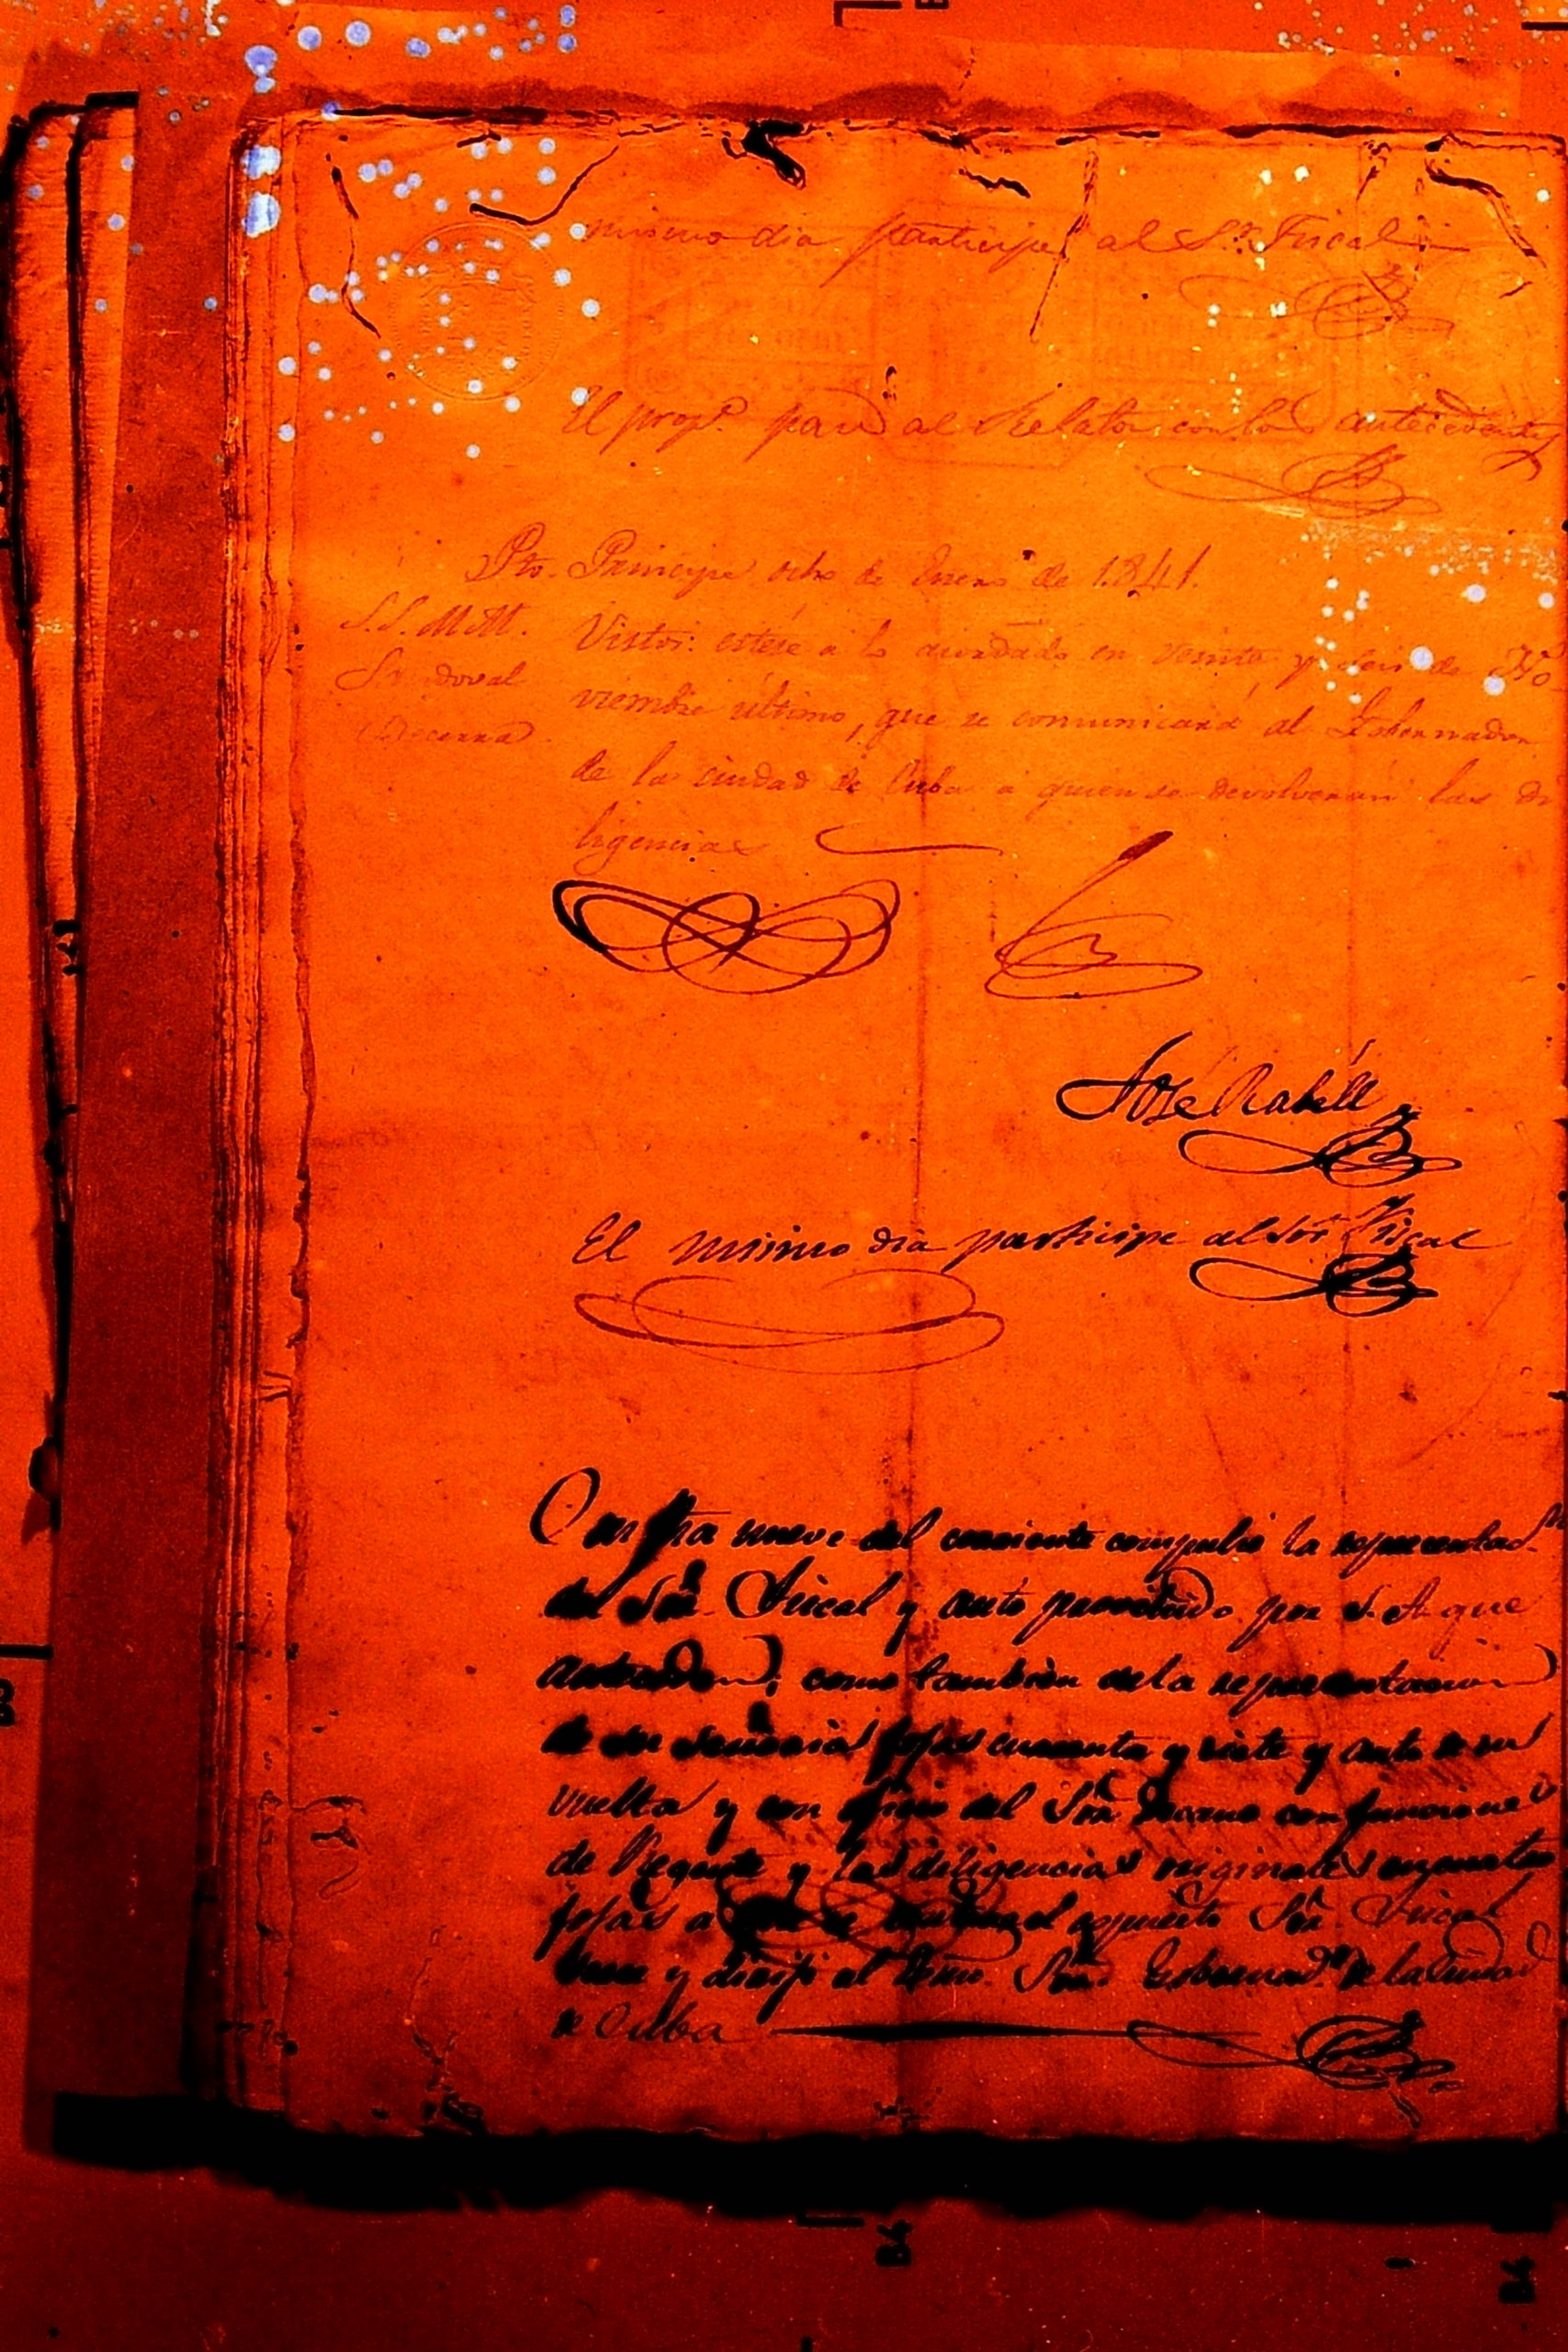 mismo dia participé al Sr. Fiscal
El prop.º pasó al Relator con los antecedentes
Pto. Principe ocho de Enero de 1841.
S.S. M.M.
Sandoval
Becerra
Vistos: estése á lo acordado en veinte y seis de No
viembre último, que se comunicará al Gobernador
de la ciudad de Cuba a quien se devolveran las di
ligencias
José Rabell
El mismo dia participe al Sor Fiscal
nueve del corriente compulsé la representac.n
del Sór. Fiscal y auto proveido por S. A. que
anteceden; como tambien de la representacion
de su señoria fojas cuarenta y siete y auto de su
vuelta y con oficio del Sór. Decano con funciones
de Regente y las diligencias originales en cuantas
fojas a el espuesto Sór. Fiscal
y dirijí al Sór. Gobernad.r de la ciudad
de Cuba